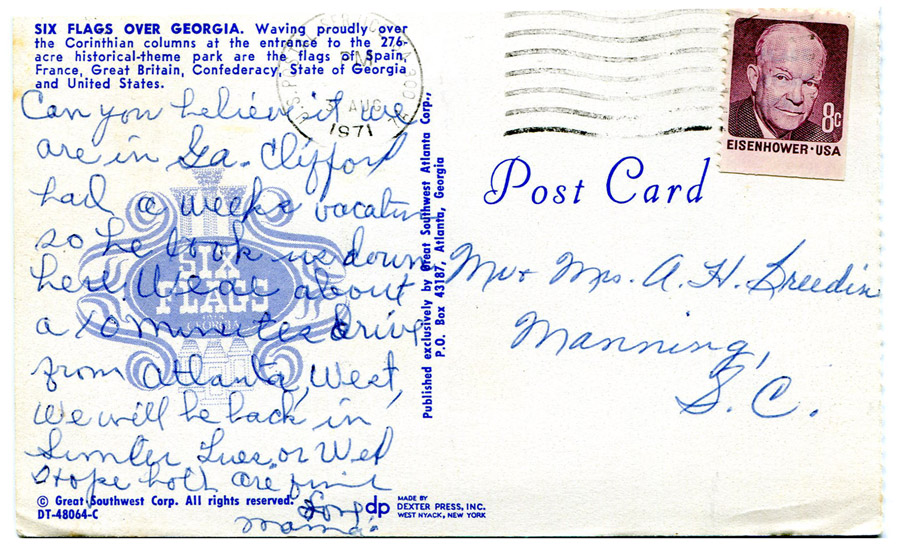 SIX FLAGS OVER GEORGIA. Waving proudly over
the Corinthian columns at the entrance to the 276-
acre historical-theme park are the flags of Spain,
France, Great Britain, Confederacy, State of Georgia
and United States.
Can you believe it we
are in Ga. Clifford
had a weeks vacation
so he took us down
here. We are about
a 10 minutes drive
from Atlanta, West,
we will be back in
Sumter Tues. or Wed
Hope both are fine
Love
Mama
SIX
FLAGS
OVER
GEORGIA
© Great Southwest Corp. All rights reserved.
DT-48064-C
Published exclusively by Great Southwest Atlanta Corp.,
P.O. Box 43187, Atlanta, Georgia
dp
MADE BY
DEXTER PRESS, INC.
WEST NYACK, NEW YORK
PM
3 AUG
1971
8c
EISENHOWER·USA
Post Card
Mr + Mrs. A. H. Breedin
Manning,
S. C.